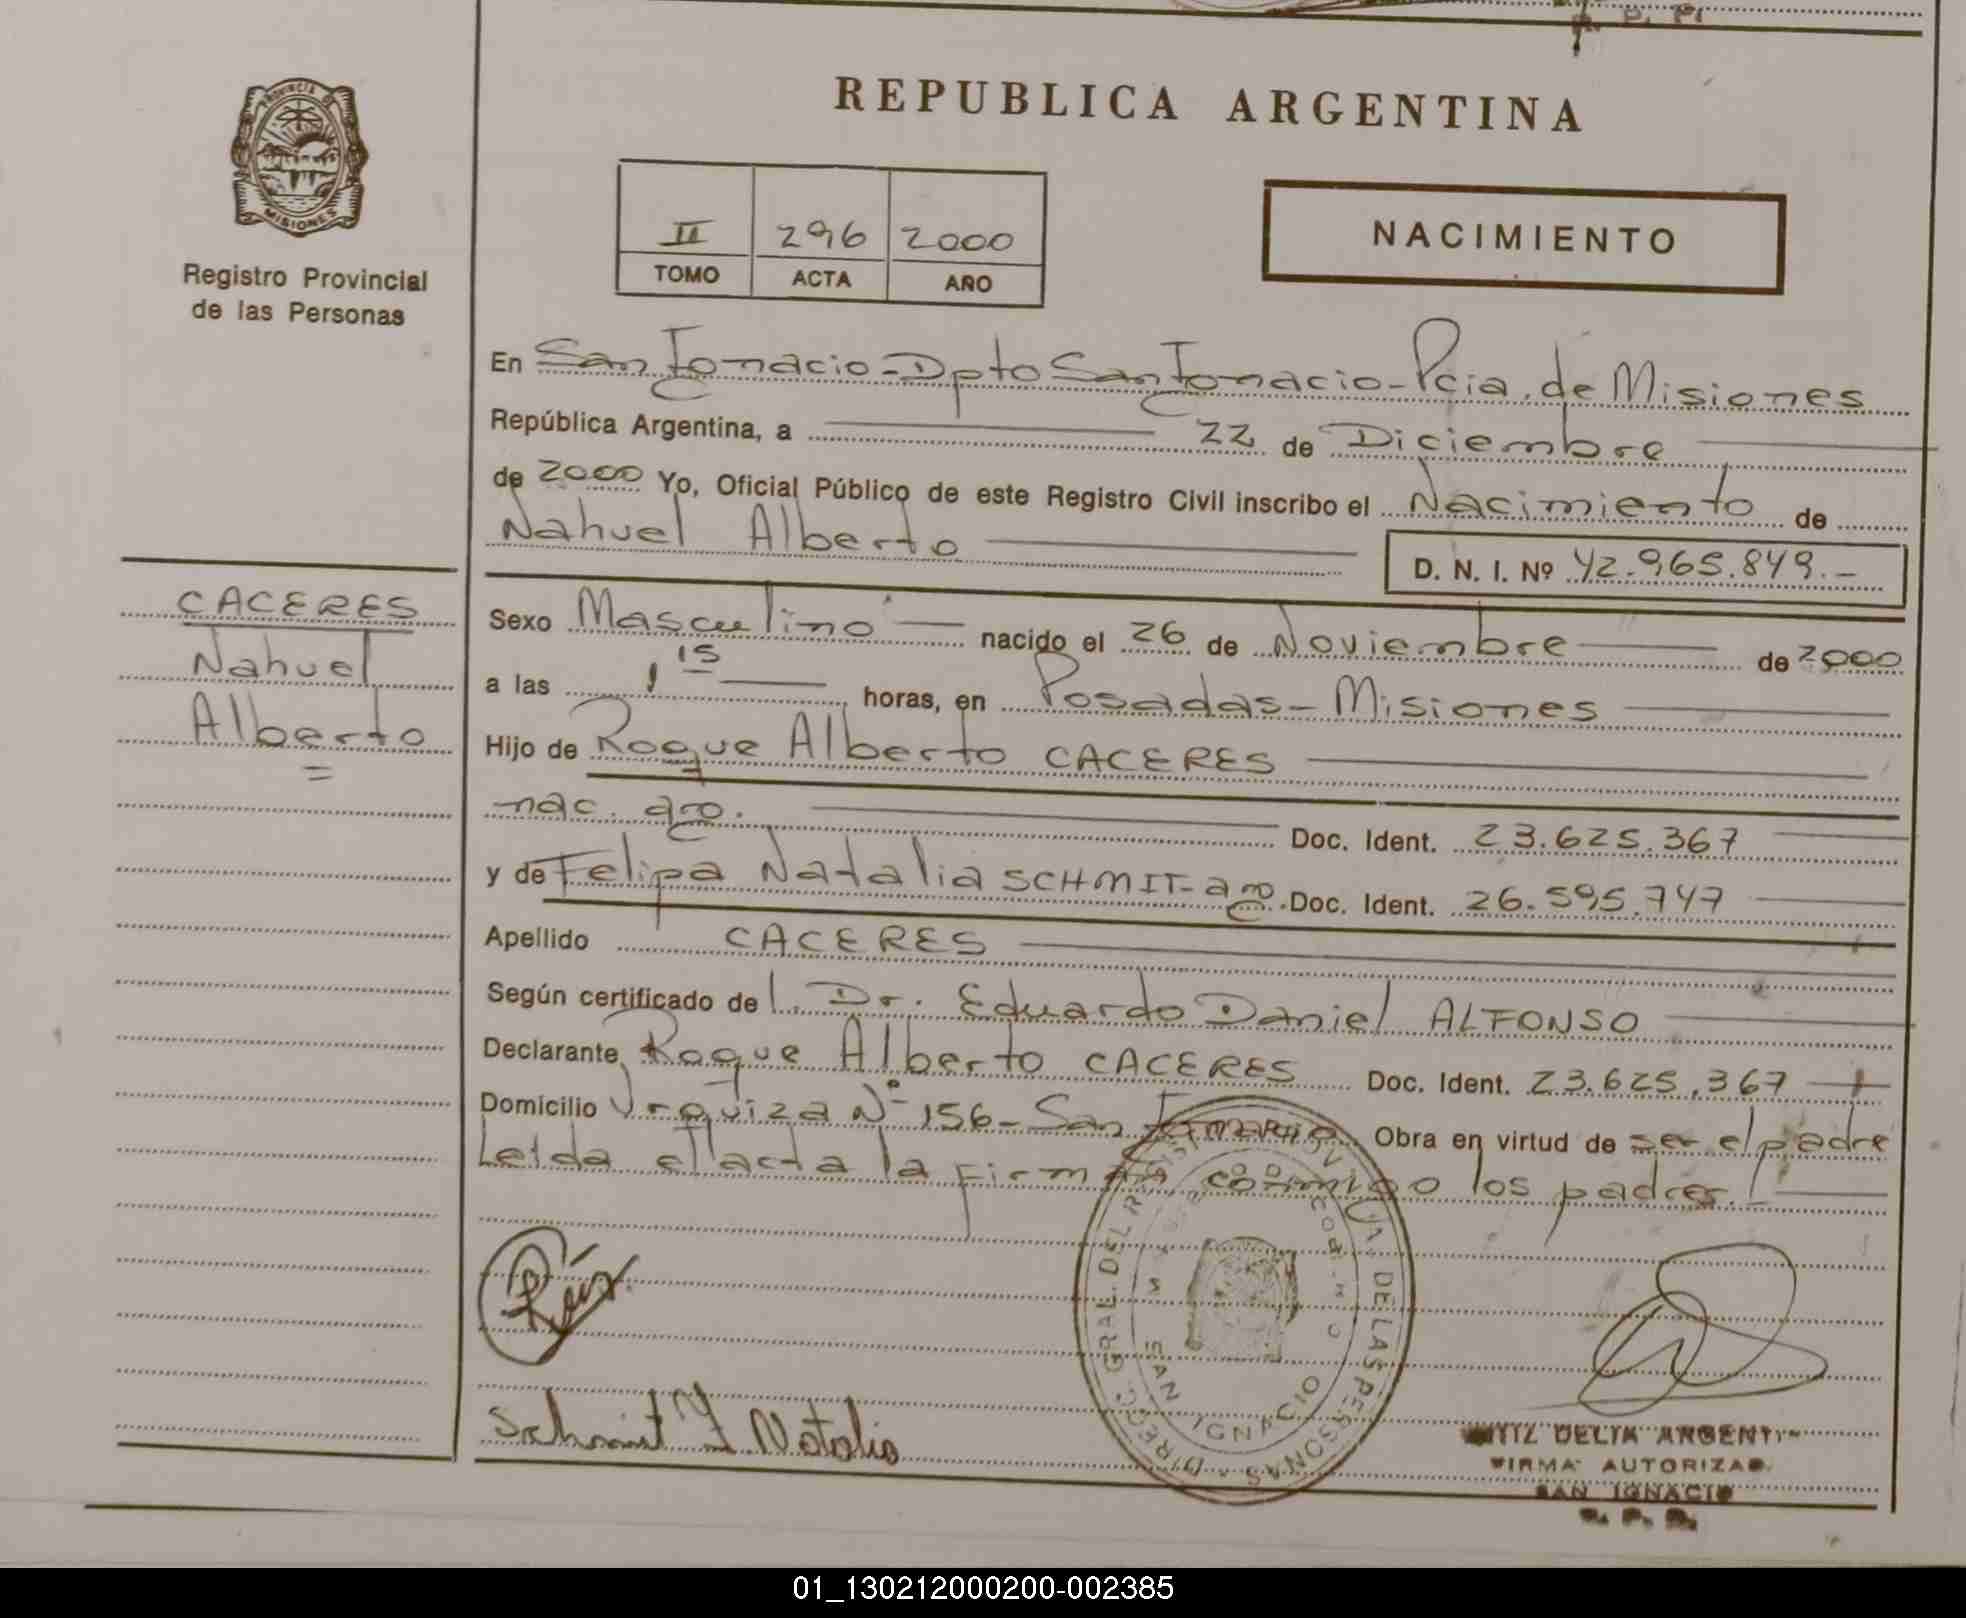 REPUBLICA ARGENTINA
PROVINCIA DE
MISIONES
Registro Provincial
de las Personas
II 296 2000
TOMO ACTA AÑO
NACIMIENTO
En San Ignacio - Dpto San Ignacio - Pcia. de Misiones
República Argentina, a 22 de Diciembre
de 2000 Yo, Oficial Público de este Registro Civil inscribo el Nacimiento de
Nahuel Alberto D. N. I. Nº 42.965.849.-
CACERES
Nahuel
Alberto
Sexo Masculino nacido el 26 de Noviembre de 2000
a las 1 15 horas, en Posadas - Misiones
Hijo de Roque Alberto CACERES
nac. arg. Doc. Ident. 23.625.367
y de Felipa Natalia SCHMIT - arg. Doc. Ident. 26.595.747
Apellido CACERES
Según certificado del Dr. Eduardo Daniel ALFONSO
Declarante Roque Alberto CACERES Doc. Ident. 23.625.367
Domicilio Urquiza Nº 156 - San Obra en virtud de ser el padre
Leida el acta la firman conmigo los padres.
DIRECC. GRAL. DEL DE LAS PERSONAS
SAN IGNACIO
Schmit F Natalia
DELIA ARGENTI
FIRMA AUTORIZAD
SAN IGNACIO
R. P. P.
01_130212000200-002385